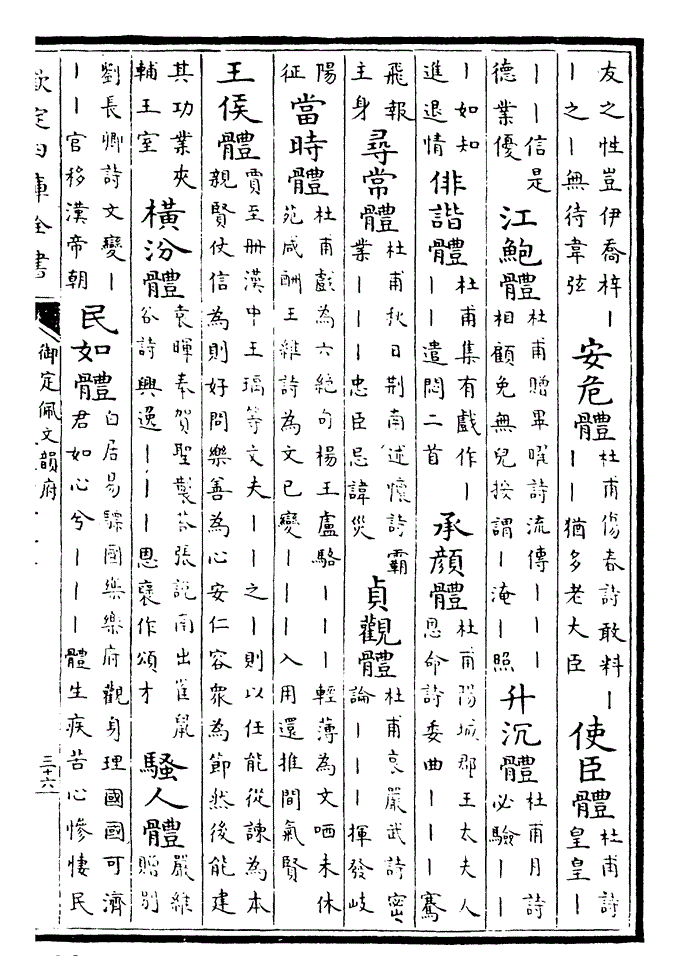 友之性豈伊喬梓丨
丨之丨無待韋弦
安危體
杜甫傷春詩敢料丨
丨猶多老大臣
使臣體
杜甫詩
皇皇丨
丨丨信是
德業優
江鮑體
杜甫贈畢曜詩流傳丨丨丨
相顧免無兒按謂丨淹丨照
升沉體
杜甫月詩
必驗丨丨
丨如知
進退情
俳諧體
杜甫集有戲作丨
丨丨遣悶二首
承顔體
杜甫陽城郡王太夫人
恩命詩委曲丨丨丨騫
飛報
主身
尋常體
杜甫秋日荆南述懷詩霸
業丨丨丨忠臣忌諱災
貞觀體
杜甫哀嚴武詩密
論丨丨丨揮發岐
陽
征
當時體
杜甫戲為六絶句楊王盧駱丨丨丨輕薄為文哂未休
苑咸酬王維詩為文已變丨丨丨入用還推間氣賢
王侯體
賈至册漢中王瑀等文夫丨丨之丨則以任能從諫為本
親賢仗信為則好問樂善為心安仁容衆為節然後能建
其功業夾
輔王室
橫汾體
袁暉奉賀聖製答張説南出雀鼠
谷詩興逸丨丨丨恩襃作頌才
騷人體
嚴維
贈别
劉長卿詩文變丨
丨丨官移漢帝朝
民如體
白居易驃國樂樂府觀身理國國可濟
君如心兮丨丨丨體生疾苦心慘悽民
欽定四庫全書
御定佩文韻府
三十六